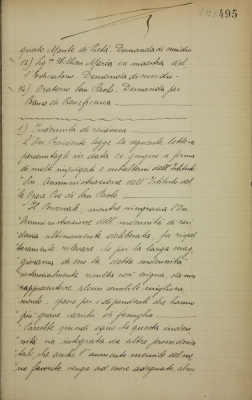 495
questo Monte di Pietà. Domanda di sussidio
13) Sig.na Hillier Maria ex maestra del
l'Educatorio. Domanda di sussidio.
14) Oratorio San Paolo. Domanda per
Banco di Beneficenza
1) Indennità di residenza
L'On. Presidente legge la seguente lettera
pervenutagli in data 10 giugno a firma
di molti impiegati e subalterni dell'Istituto:
"On. Amministrazione dell'Istituto del
le Opere Pie di San Paolo.
" Il Personale, mentre ringrazia l'On.
Amministrazione dell'indennità di resi
denza ultimamente deliberata, fa rispet
tosamente rilevare che per la larga mag
gioranza di esso la detta indennità
sostanzialmente risulta così esigua, da non
rappresentare alcun sensibile migliora
mento, specie per i dipendenti che hanno
più grave carico di famiglia.
Sarebbe quindi equo che questa inden
nità sia integrata da altre provvidenze
tali, che anche l'aumento mensile del me
no favorito venga ad essere adeguato, alme